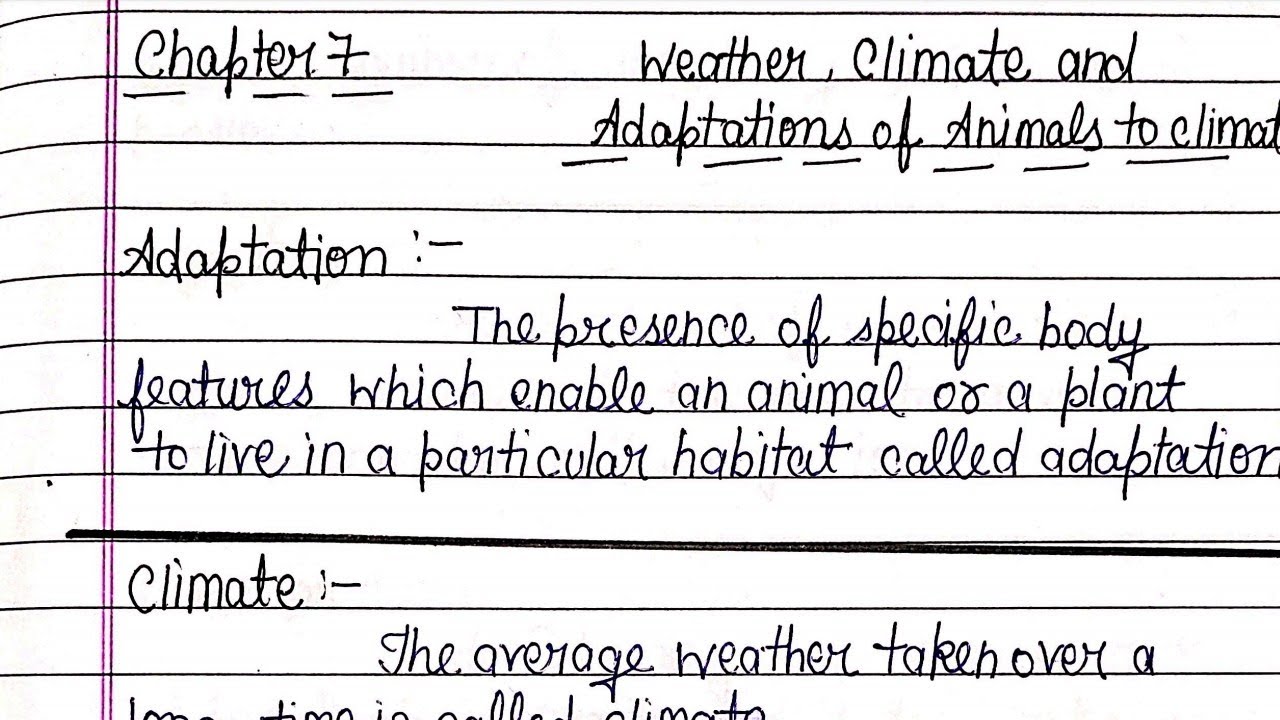 Chapter 7
Weather, Climate and
Adaptations of Animals to climat
Adaptation :-
The presence of specific body
features which enable an animal or a plant
to live in a particular habitat called adaptation
Climate :-
The average weather taken over a
long time is called climate